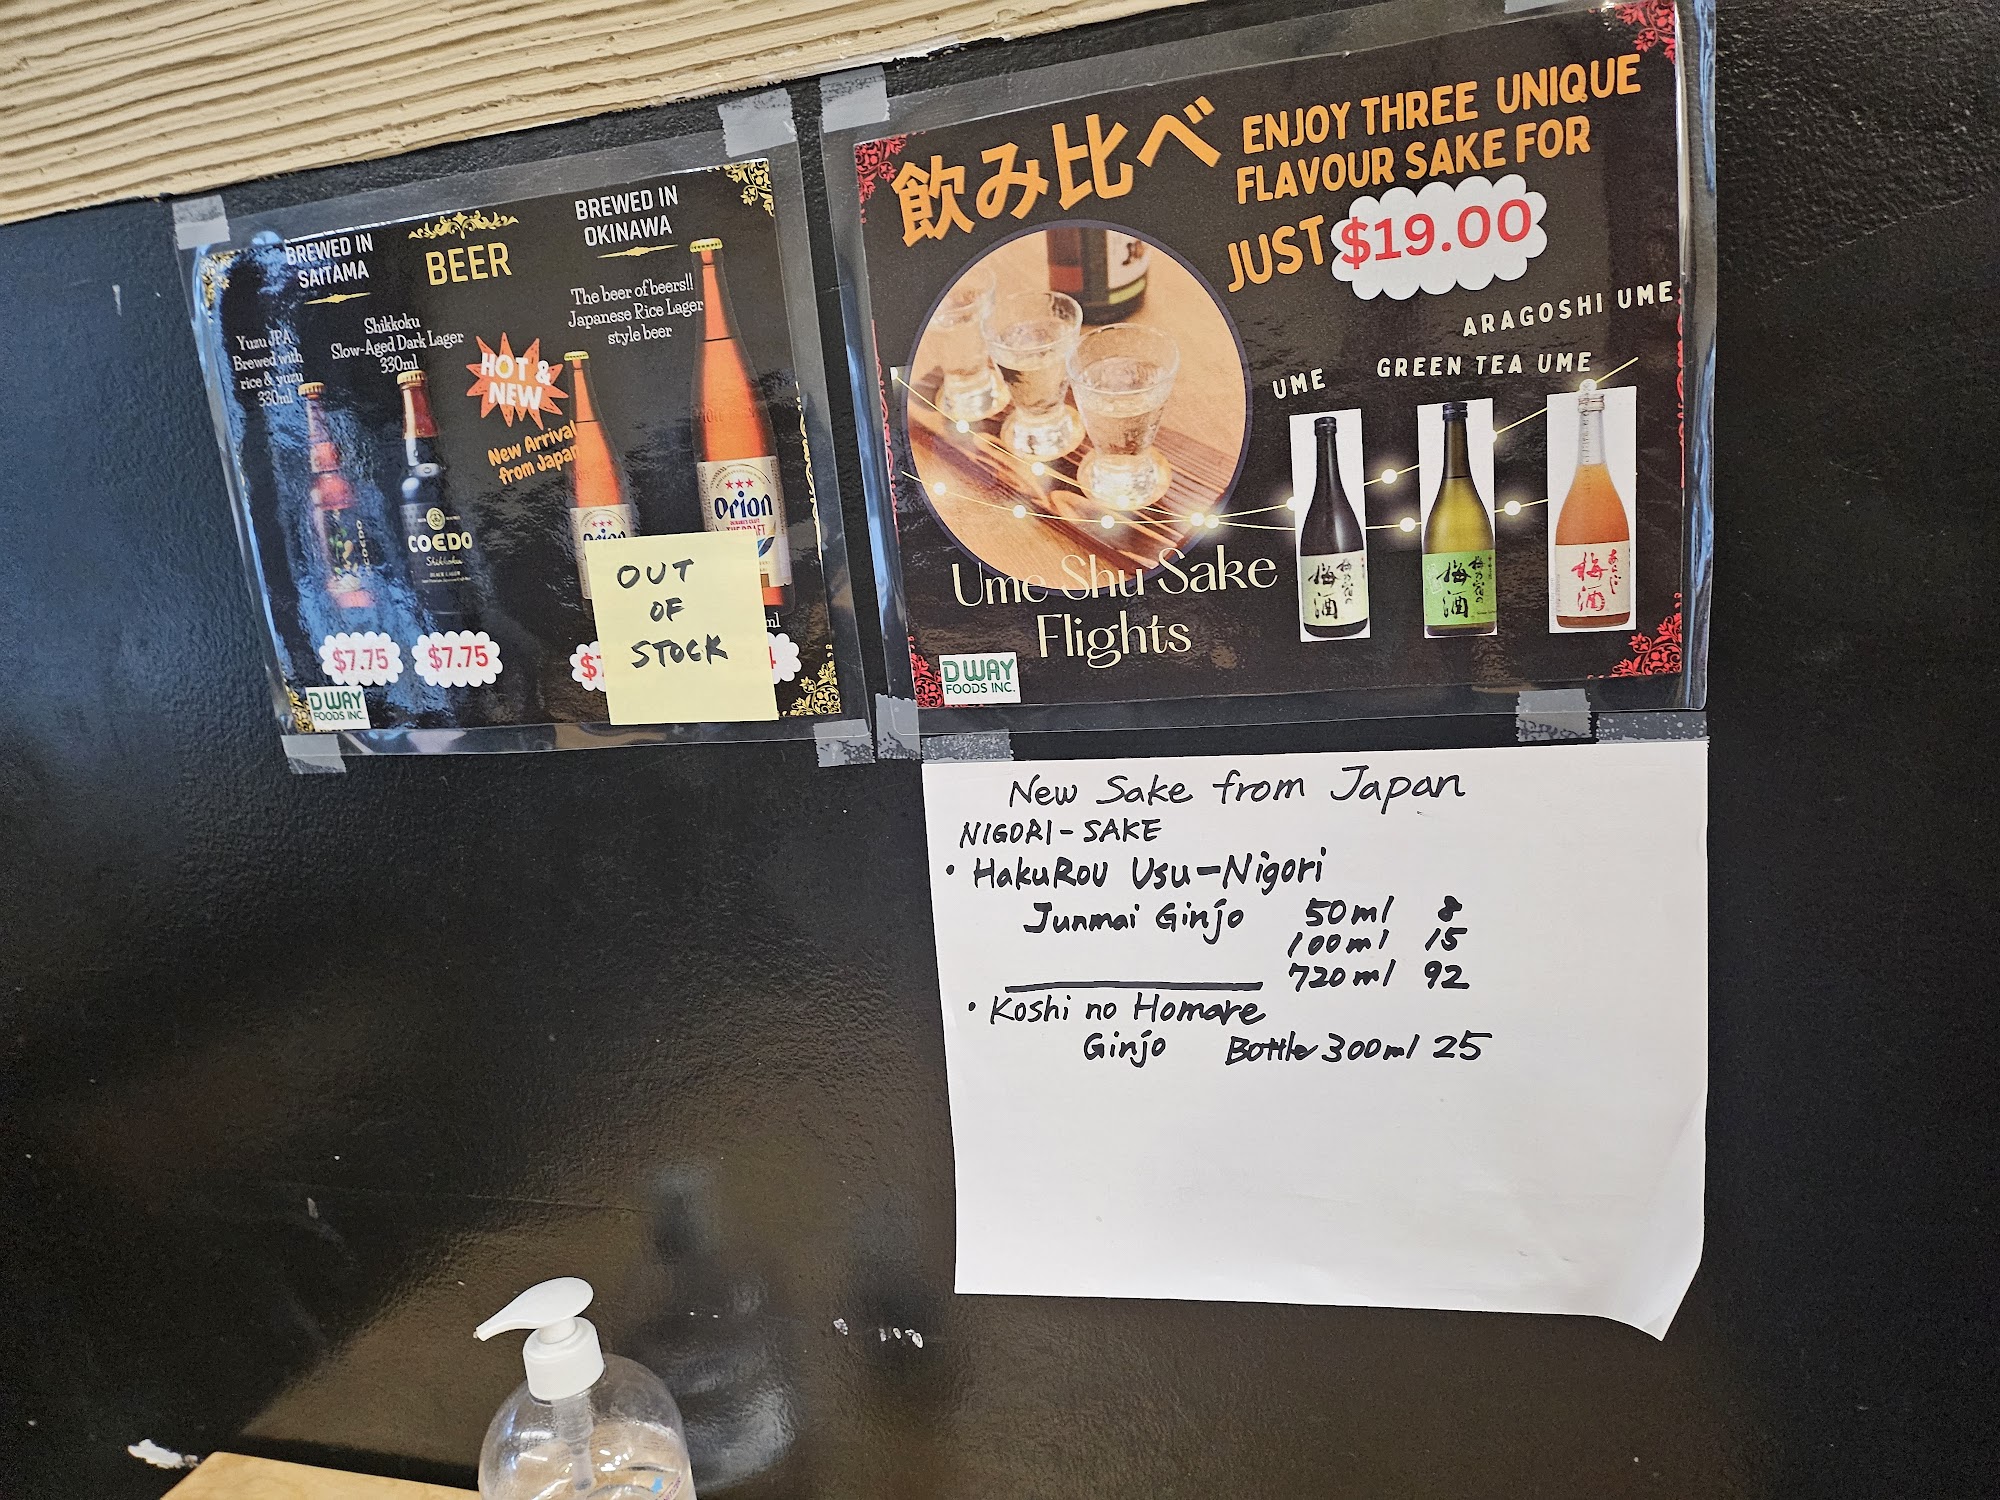 BREWED IN
SAITAMA
BEER
BREWED IN
OKINAWA
Yuzu JPA
Brewed with
rice & yuzu
330ml
Shikkoku
Slow-Aged Dark Lager
330ml
HOT &
NEW
New Arrival
from Japan
The beer of beers!!
Japanese Rice Lager
style beer
COEDO
COEDO
Shikkoku
BLACK LAGER
Orion
Orion
THE DRAFT
OUT
OF
STOCK
ml
$7.75
$7.75
$7
4
D WAY
FOODS INC.
飲み比べ
ENJOY THREE UNIQUE
FLAVOUR SAKE FOR
JUST $19.00
ARAGOSHI UME
GREEN TEA UME
UME
梅乃宿の
梅酒
梅乃宿の
梅酒
あらごし
梅酒
Ume Shu Sake
Flights
D WAY
FOODS INC.
New Sake from Japan
NIGORI-SAKE
• HakuRou Usu-Nigori
Junmai Ginjo 50ml 8
100ml 15
720ml 92
• Koshi no Homare
Ginjo Bottle 300ml 25